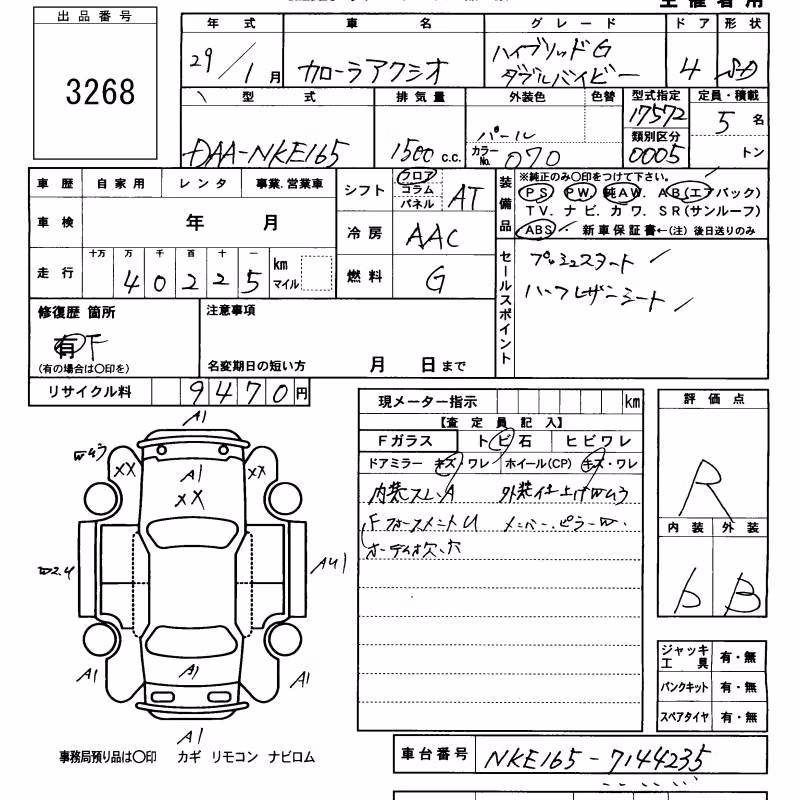 出品番号
3268
年 式
29/1月
車 名
カローラアクシオ
グレード
ハイブリッドG
ダブルバイビー
ドア
4
形状
SD
型 式
DAA-NKE165
排気量
1500 c.c.
外装色
パール
色替
カラーNo. 070
型式指定
17572
類別区分
0005
定員・積載
5 名
トン
車歴 自家用 レンタ 事業.営業車
車検 年 月
走行 十万 万 千 百 十 一
40225 km マイル
シフト フロア コラム パネル AT
冷房 AAC
燃料 G
装備品
※純正のみ〇印をつけて下さい。
PS PW 純AW. AB(エアバック)
TV. ナビ. カワ. SR(サンルーフ)
ABS 新車保証書←(注) 後日送りのみ
セールスポイント
プッシュスタート
ハーフレザーシート
修復歴 箇所
有 F
(有の場合は〇印を)
注意事項
名変期日の短い方 月 日まで
リサイクル料 9470円
現メーター指示 km
【査定員記入】
Fガラス トビ石 ヒビワレ
ドアミラー キズ ワレ ホイール(CP) キズ・ワレ
内装スレ.A 外装仕上げWムラ
Fフォースメント U メンバー.ピラーW.
オーディオ欠.穴
評価点
R
内装 外装
b B
A1
Wムラ
XX
XX
A1
XX
W2.4
AU1
A1
A1
A1
A1
ジャッキ工具 有・無
パンクキット 有・無
スペアタイヤ 有・無
事務局預り品は〇印 カギ リモコン ナビロム
車台番号 NKE165-7144235